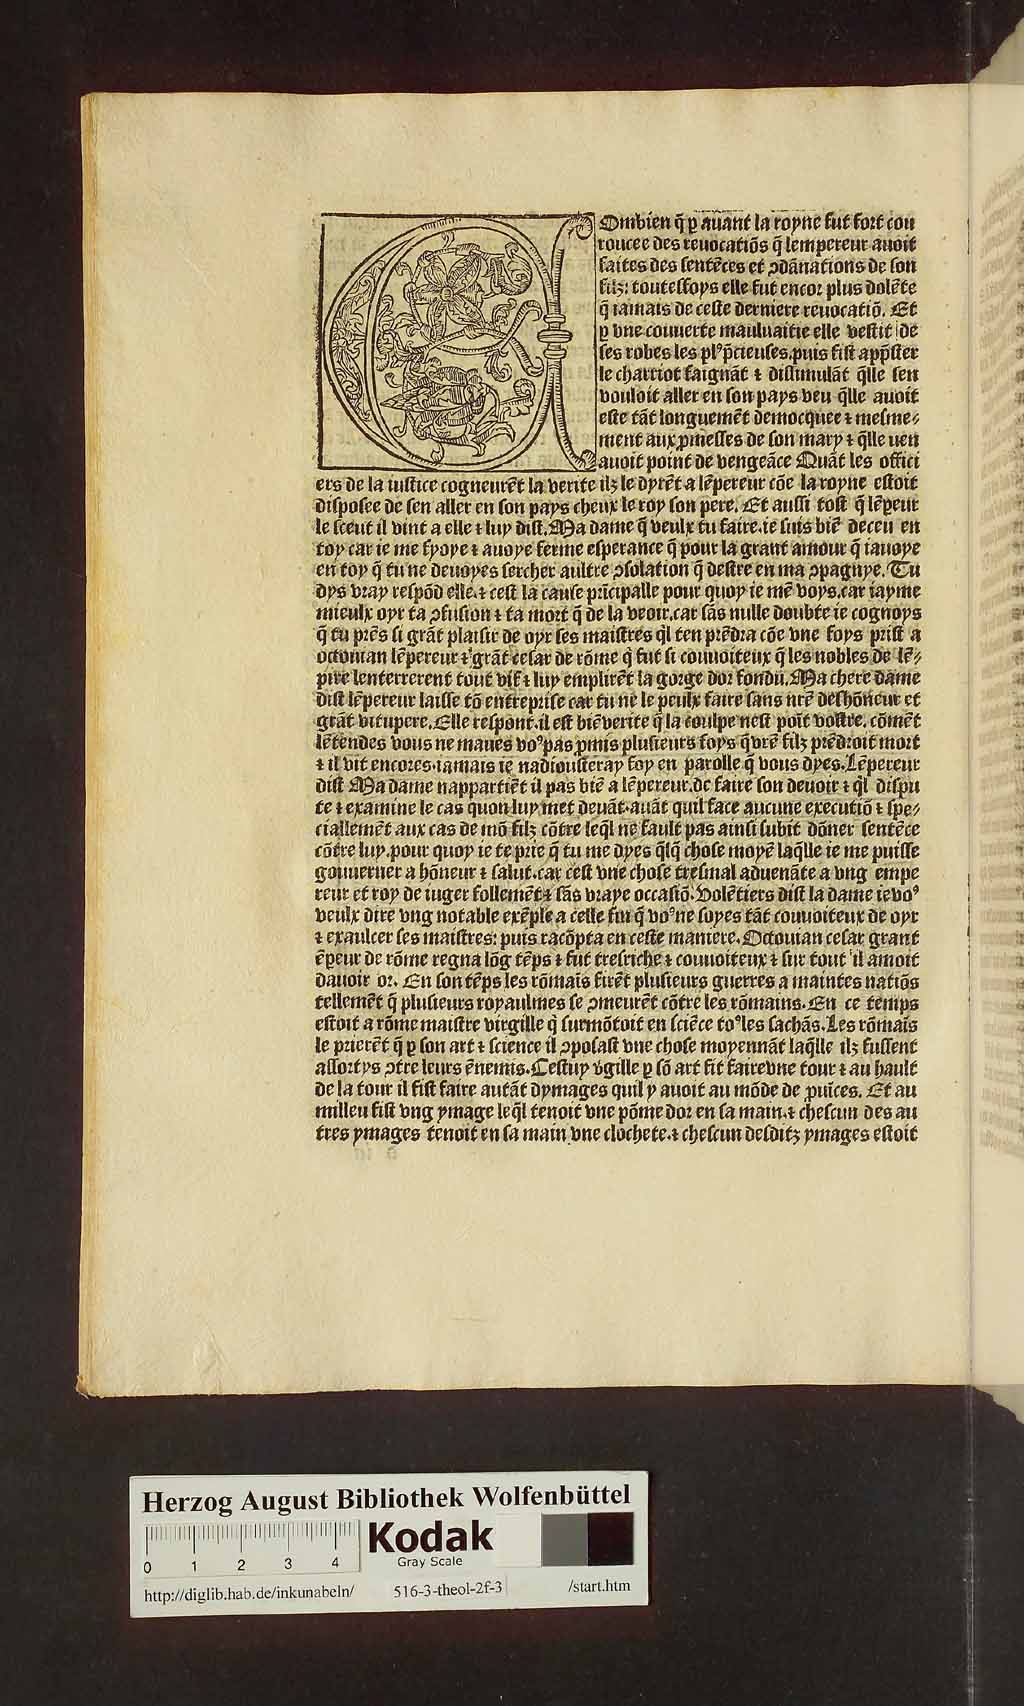 COmbien q̄ ꝑ auant la royne fut fort cou
roucee des reuocatiōs q̄ lempereur auoit
faites des sentēces et ↄdānations de son
filz: toutesfoys elle fut encor plus dolēte
q̄ iamais de ceste derniere reuocatiō. Et
ꝑ vne couuerte mauluaitie elle vestit de
ses robes les plꝰ p̄cieuses.puis fist app̄ster
le charriot faignāt ⁊ dissimulāt q̄lle sen
vouloit aller en son pays veu q̄lle auoit
este tāt longuemēt democquee ⁊ mesme⸗
ment aux ꝓmesses de son mary ⁊ q̄lle uen
auoit point de vengeāce Quāt les offici
ers de la iustice cogneurēt la verite ilz le dyrēt a lēpereur cōe la royne estoit
disposee de sen aller en son pays cheux le roy son pere. Et aussi tost q̄ lēꝑeur
le sceut il vint a elle ⁊ luy dist. Ma dame q̄ veulx tu faire. ie suis biē deceu en
toy car ie me fyoye ⁊ auoye ferme esperance q̄ pour la grant amour q̄ iauoye
en toy q̄ tu ne deuoyes sercher aultre ↄsolation q̄ destre en ma ↄpagnye. Tu
dys vray respōd elle.⁊ cest la cause pricipalle pour quoy ie mē voys.car iayme
mieulx oyr ta ↄfusion ⁊ ta mort q̄ de la veoir.car sās nulle doubte ie cognoys
q̄ tu prēs si grāt plaisir de oyr ses maistres q̄l ten prēdra cōe vne foys prist a
octouian lēpereur ⁊ grāt cesar de rōme q̄ fut si couuoiteux q̄ les nobles de lē⸗
pire lenterrerent tout vif ⁊ luy emplirēt la gorge dor fondu. Ma chere dame
dist lēpereur laisse tō entreprise car tu ne le peulx faire sans nrē deshōneur et
grāt vitupere. Elle respont.il est biē verite q̄ la coulpe nest poīt vostre. cōmēt
lētendes vous ne maues voꝰ pas ꝓmis plusieurs foys q̄ vrē filz prēdroit mort
⁊ il vit encores.iamais ie nadiousteray foy en parolle q̄ vous dyes. Lēpereur
dist Ma dame nappartiēt il pas biē a lēpereur.de faire son deuoir ⁊ q̄l dispu
te ⁊ examine le cas quon luy met deuāt.auāt quil face aucune executiō ⁊ spe⸗
ciallemēt aux cas de mō filz cōtre leq̄l ne fault pas ainsi subit dōner sentēce
cōtre luy.pour quoy ie te prie q̄ tu me dyes q̄lq̄ chose moyē laq̄lle ie me puisse
gouuerner a hōneur ⁊ salut.car cest vne chose tresmal aduenāte a vng empe
reur et roy de iuger follemēt ⁊ sās vraye occasiō. Volētiers dist la dame ie voꝰ
veulx dire vng notable exēple a celle fin q̄ voꝰ ne soyes tāt couuoiteux de oyr
⁊ exaulcer ses maistres: puis racōpta en ceste maniere. Octouian cesar grant
ēꝑeur de rōme regna lōg tēps ⁊ fut tresriche ⁊ couuoiteux ⁊ sur tout il amoit
dauoir or. En son tēps les rōmais firēt plusieurs guerres a maintes natiōs
tellemēt q̄ plusieurs royaulmes se ↄmeurēt cōtre les rōmains. En ce temps
estoit a rōme maistre virgille q̄ surmōtoit en sciēce toꝰ les sachās. Les rōmais
le prierēt q̄ ꝑ son art ⁊ science il ↄposast vne chose moyennāt laq̄lle ilz fussent
assortys ↄtre leurs ēnemis. Cestuy v̓gille ꝑ sō art fit faire vne tour ⁊ au hault
de la tour il fist faire autāt dymages quil y auoit au mōde de ꝓuīces. Et au
milleu fist vng ymage leq̄l tenoit vne pōme dor en sa main.⁊ chescun des au
tres ymages tenoit en sa main vne clochete.⁊ chescun desditz ymages estoit
Herzog August Bibliothek Wolfenbüttel
Kodak
Gray Scale
0 1 2 3 4
http://diglib.hab.de/inkunabeln/ 516-3-theol-2f-3 /start.htm